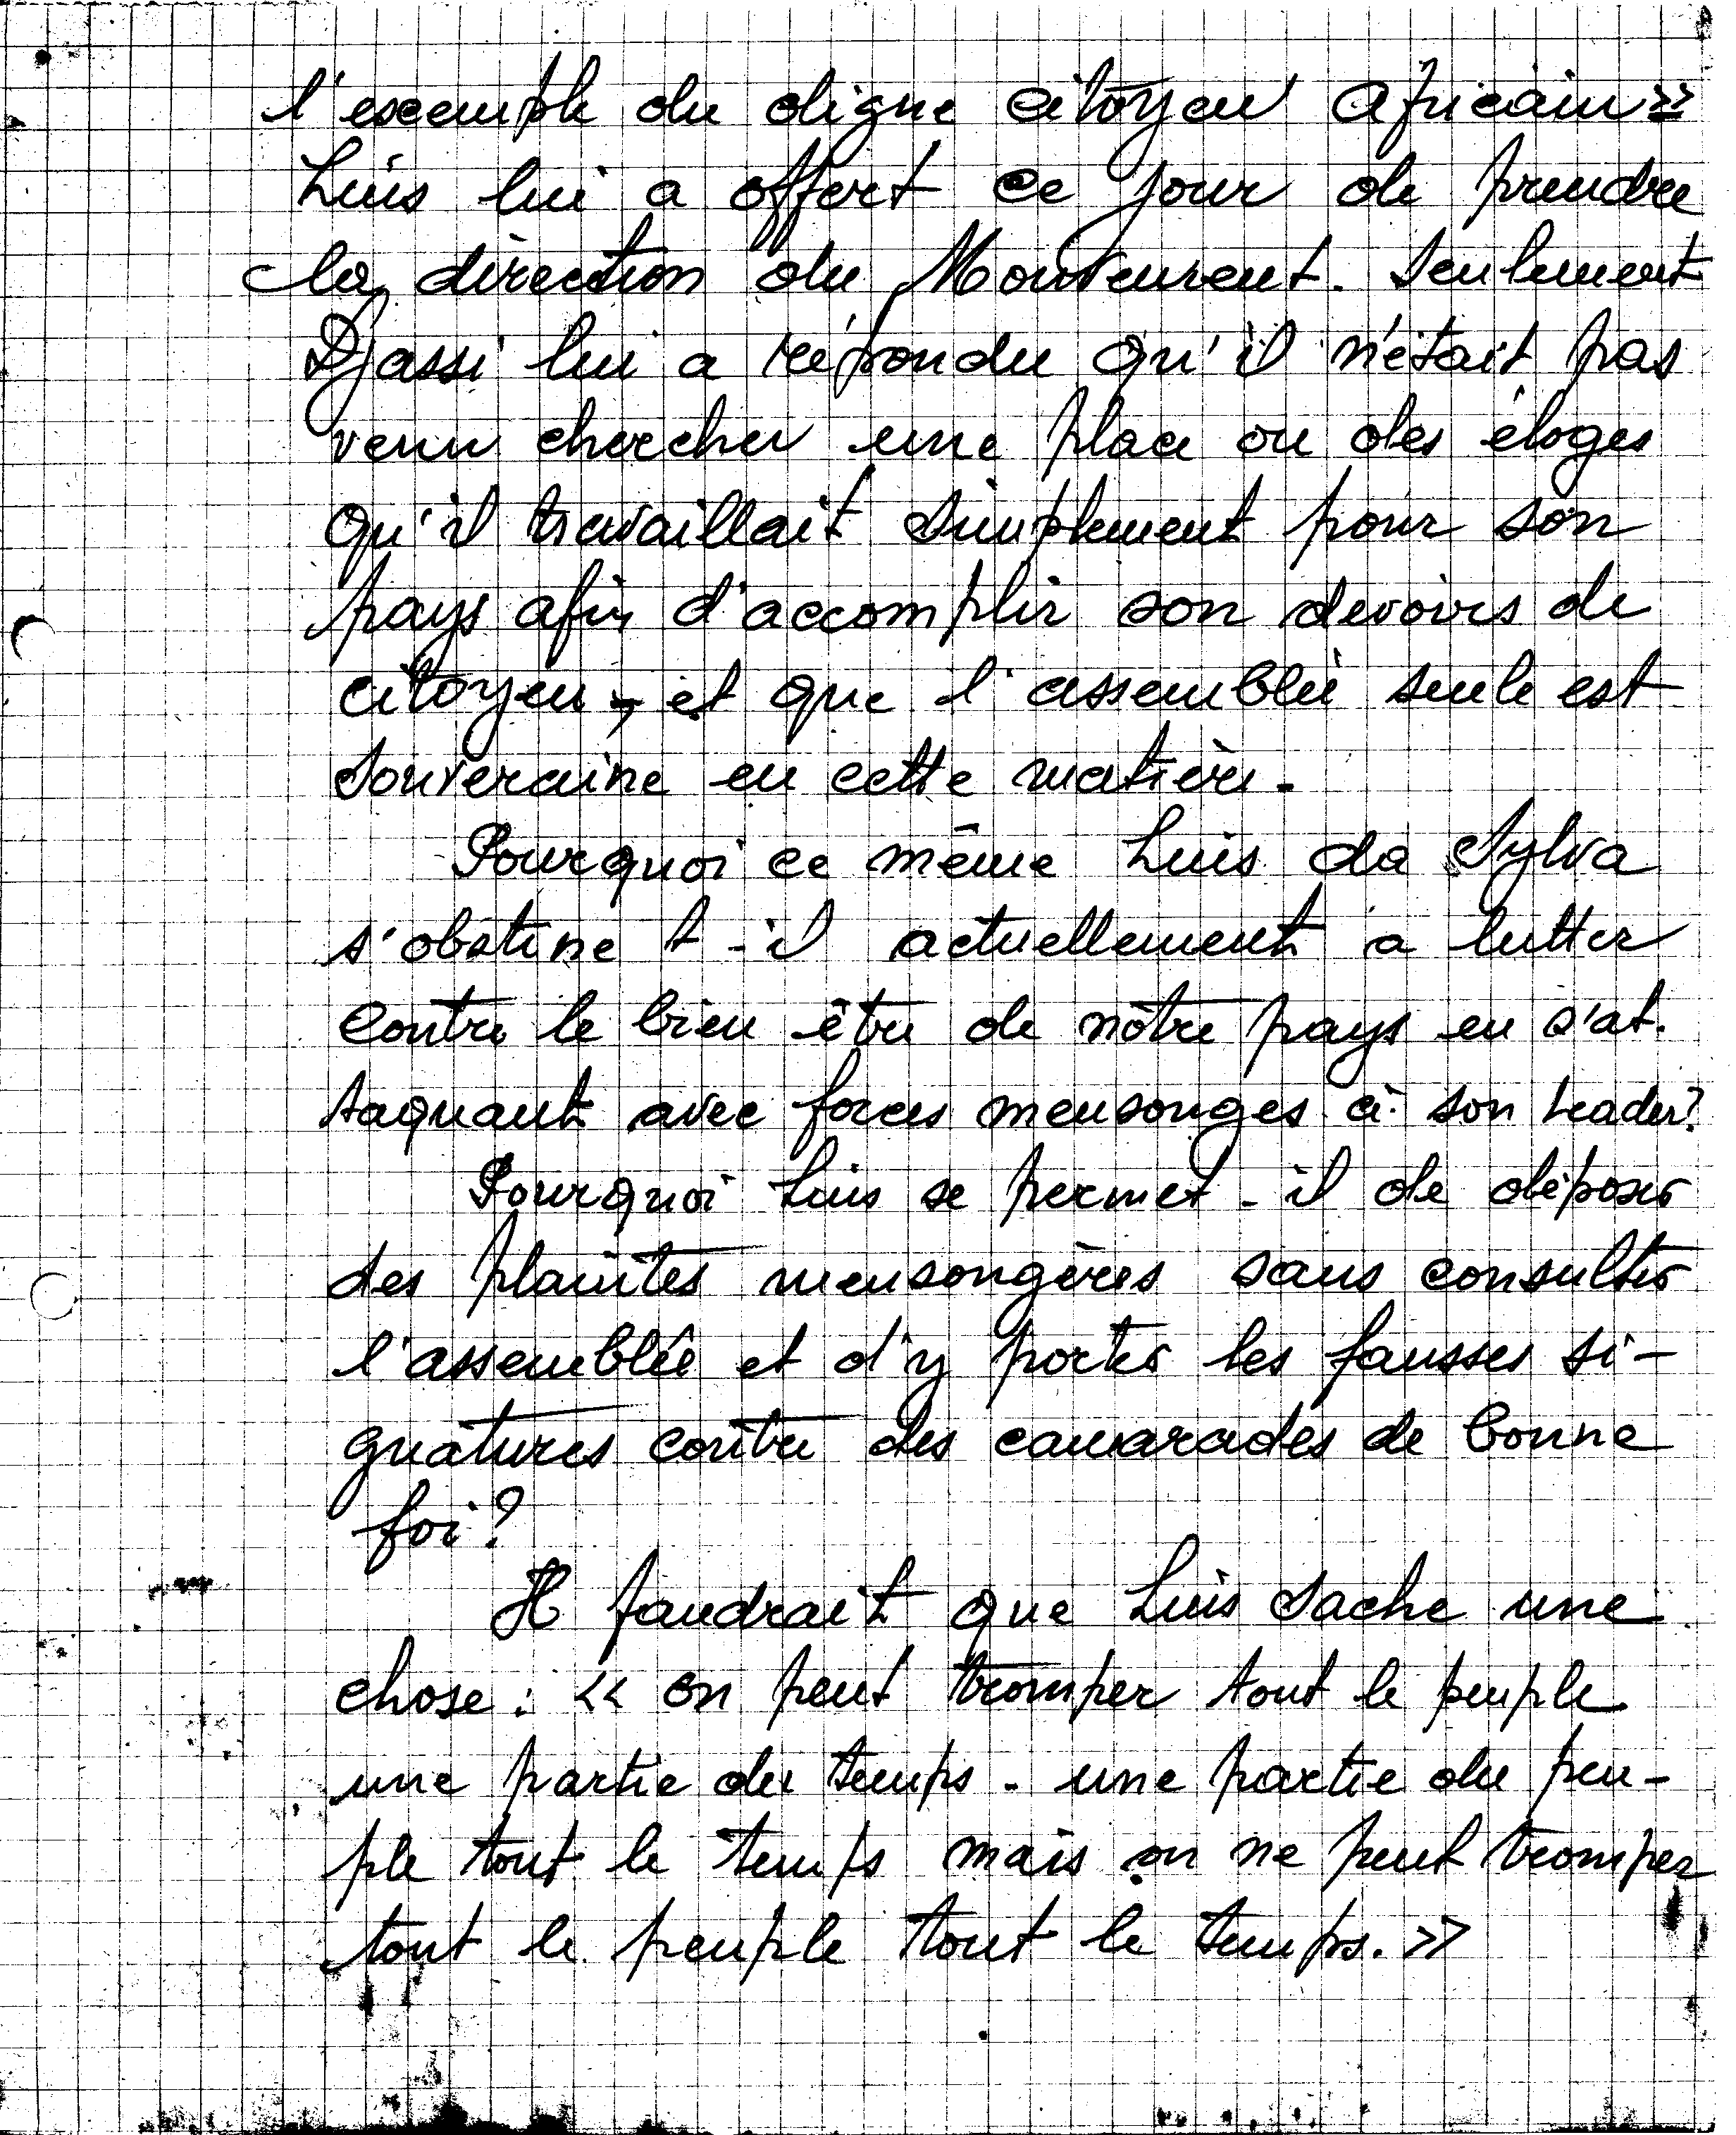 l'exemple du digne citoyen Africain »
Luis lui a offert ce jour de prendre
la direction du Mouvement. Seulement
Djassi lui a répondu qu'il n'était pas
venu chercher une place ou des éloges
qu'il travaillait simplement pour son
pays afin d'accomplir son devoirs de
citoyen, et que l'assemblée seule est
souveraine en cette matière.
Pourquoi ce même Luis da Sylva
s'obstine t-il actuellement à lutter
contre le bien être de nôtre pays en s'at-
taquant avec forces mensonges à son Leader?
Pourquoi Luis se permet-il de déposer
des plaintes mensongères sans consulter
l'assemblée et d'y porter les fausses si-
gnatures contre des camarades de bonne
foi?
Il faudrait que Luis sache une
chose : « on peut tromper tout le peuple
une partie du temps - une partie du peu-
ple tout le temps mais on ne peut tromper
tout le peuple tout le temps. »